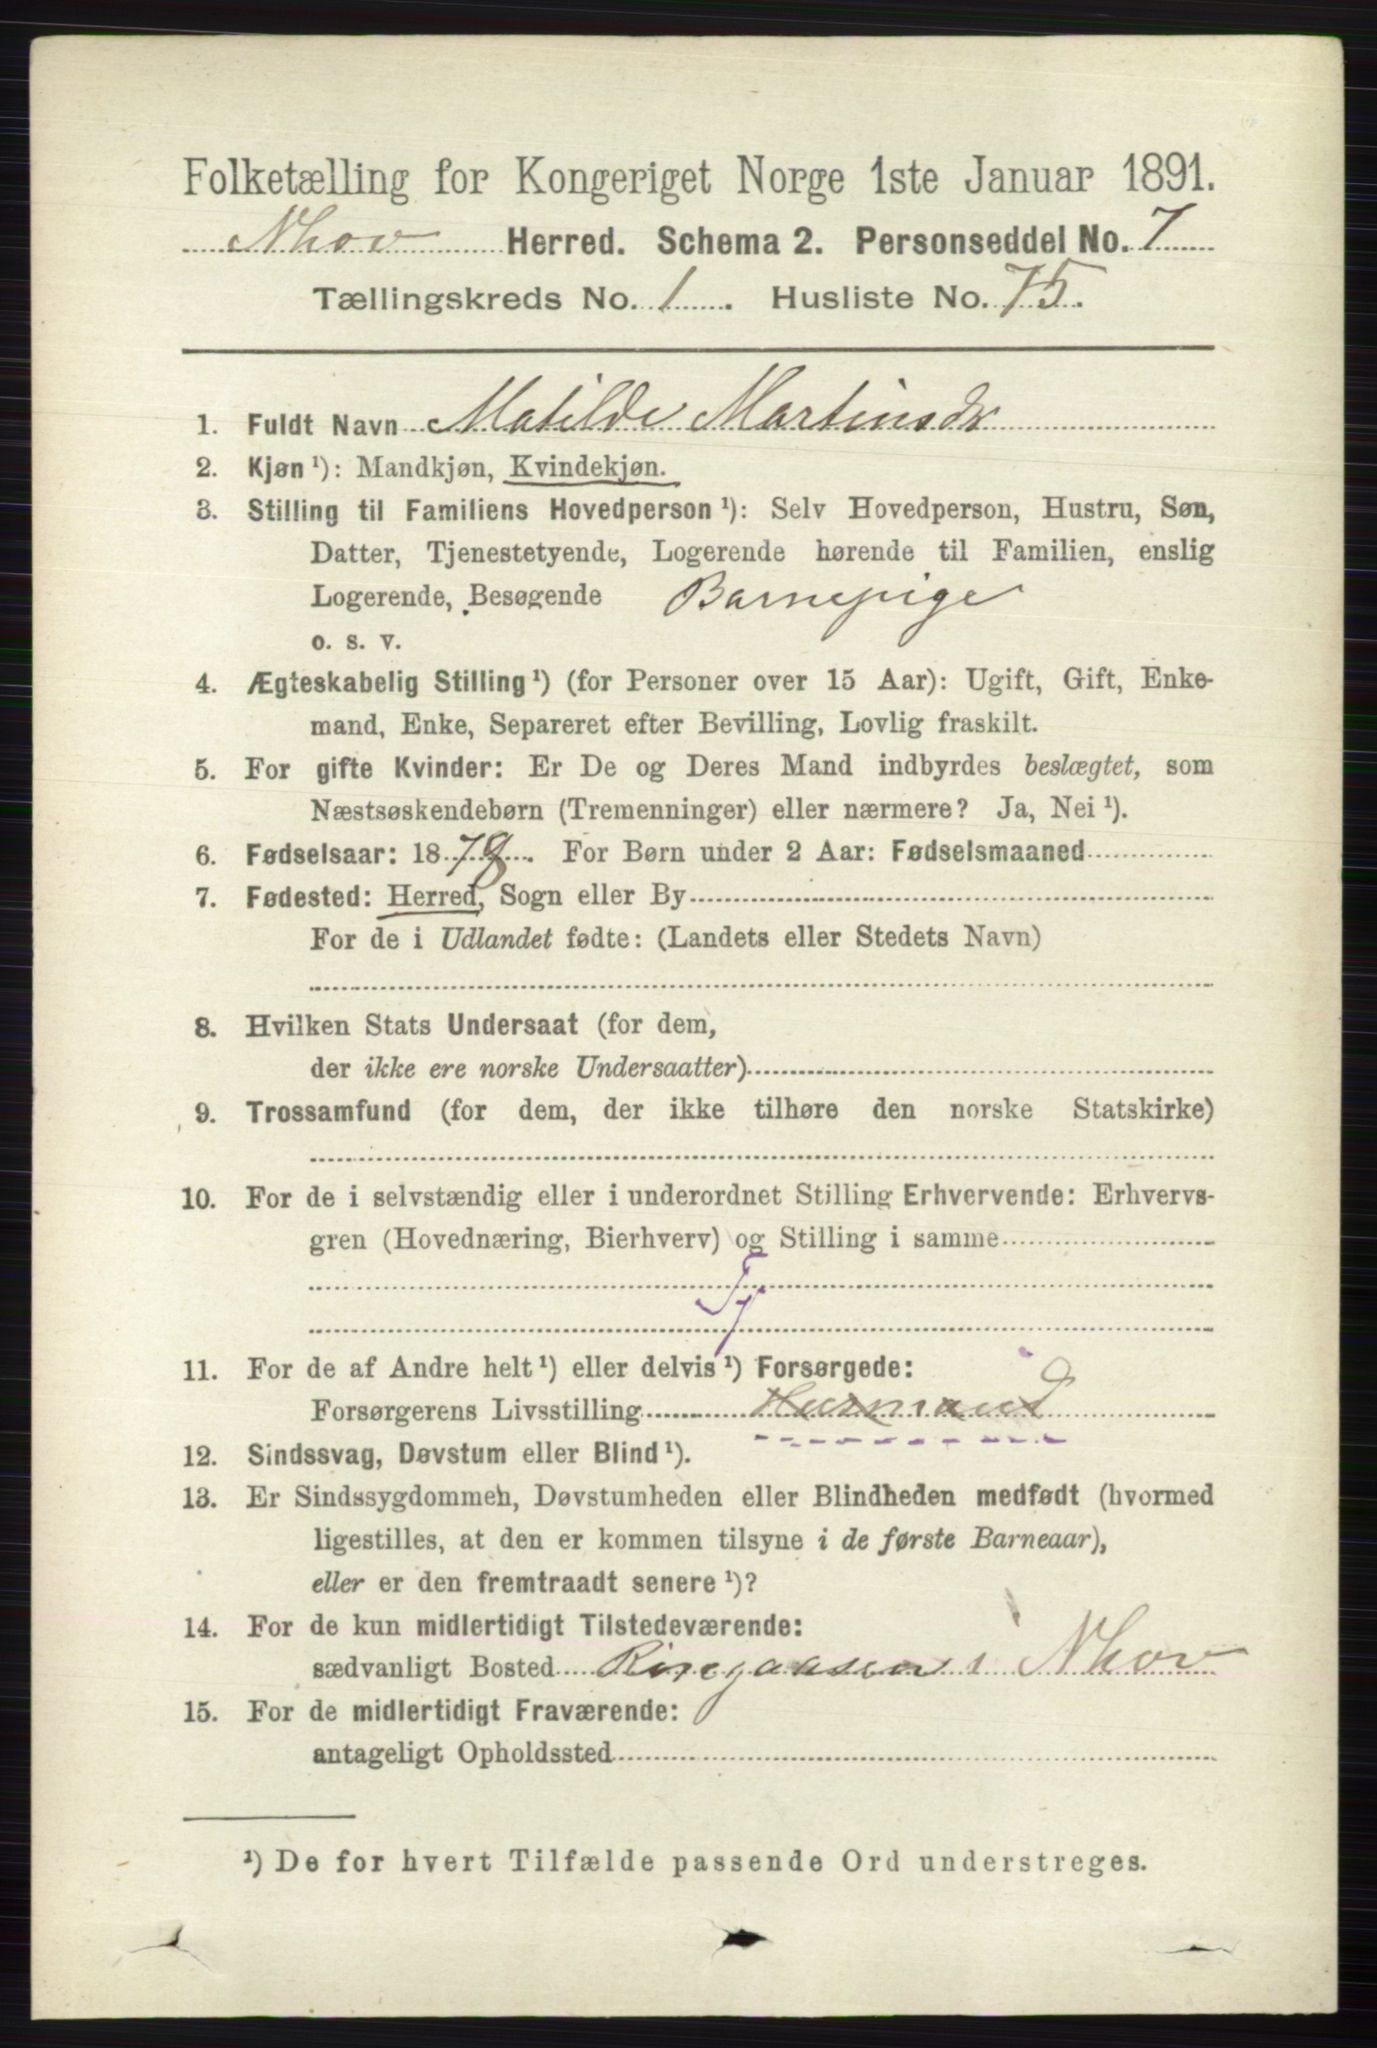 Folketælling for Kongeriget Norge 1ste Januar 1891.
Nhov Herred. Schema 2. Personseddel No. 7
Tællingskreds No. 1. Husliste No. 75.
1. Fuldt Navn Matilde Martinsdr
2. Kjøn ¹): Mandkjøn, Kvindekjøn.
3. Stilling til Familiens Hovedperson ¹): Selv Hovedperson, Hustru, Søn,
Datter, Tjenestetyende, Logerende hørende til Familien, enslig
Logerende, Besøgende Barnepige
o. s. v.
4. Ægteskabelig Stilling ¹) (for Personer over 15 Aar): Ugift, Gift, Enke-
mand, Enke, Separeret efter Bevilling, Lovlig fraskilt.
5. For gifte Kvinder: Er De og Deres Mand indbyrdes beslægtet, som
Næstsøskendebørn (Tremenninger) eller nærmere? Ja, Nei ¹).
6. Fødselsaar: 1878. For Børn under 2 Aar: Fødselsmaaned
7. Fødested: Herred, Sogn eller By
For de i Udlandet fødte: (Landets eller Stedets Navn)
8. Hvilken Stats Undersaat (for dem,
der ikke ere norske Undersaatter)
9. Trossamfund (for dem, der ikke tilhøre den norske Statskirke)
10. For de i selvstændig eller i underordnet Stilling Erhvervende: Erhvervs-
gren (Hovednæring, Bierhverv) og Stilling i samme
Tj
11. For de af Andre helt ¹) eller delvis ¹) Forsørgede:
Forsørgerens Livsstilling Husmand
12. Sindssvag, Døvstum eller Blind ¹).
13. Er Sindssygdommen, Døvstumheden eller Blindheden medfødt (hvormed
ligestilles, at den er kommen tilsyne i de første Barneaar),
eller er den fremtraadt senere ¹)?
14. For de kun midlertidigt Tilstedeværende:
sædvanligt Bosted Ringaasen i Nhov
15. For de midlertidigt Fraværende:
antageligt Opholdssted
¹) De for hvert Tilfælde passende Ord understreges.